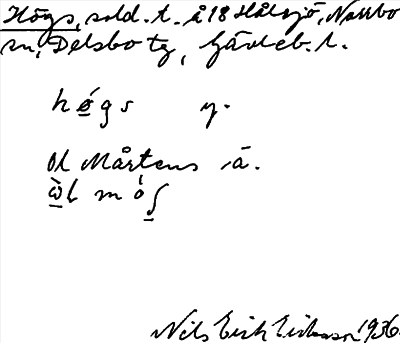 Högs, sold. t. å 18 Hålsjö, Norrbo
sn, Delsbo tg, Gävleb. l.
högs y.
Ol Mårtens ä.
òl mós
Nils Erik Eriksson 1936.